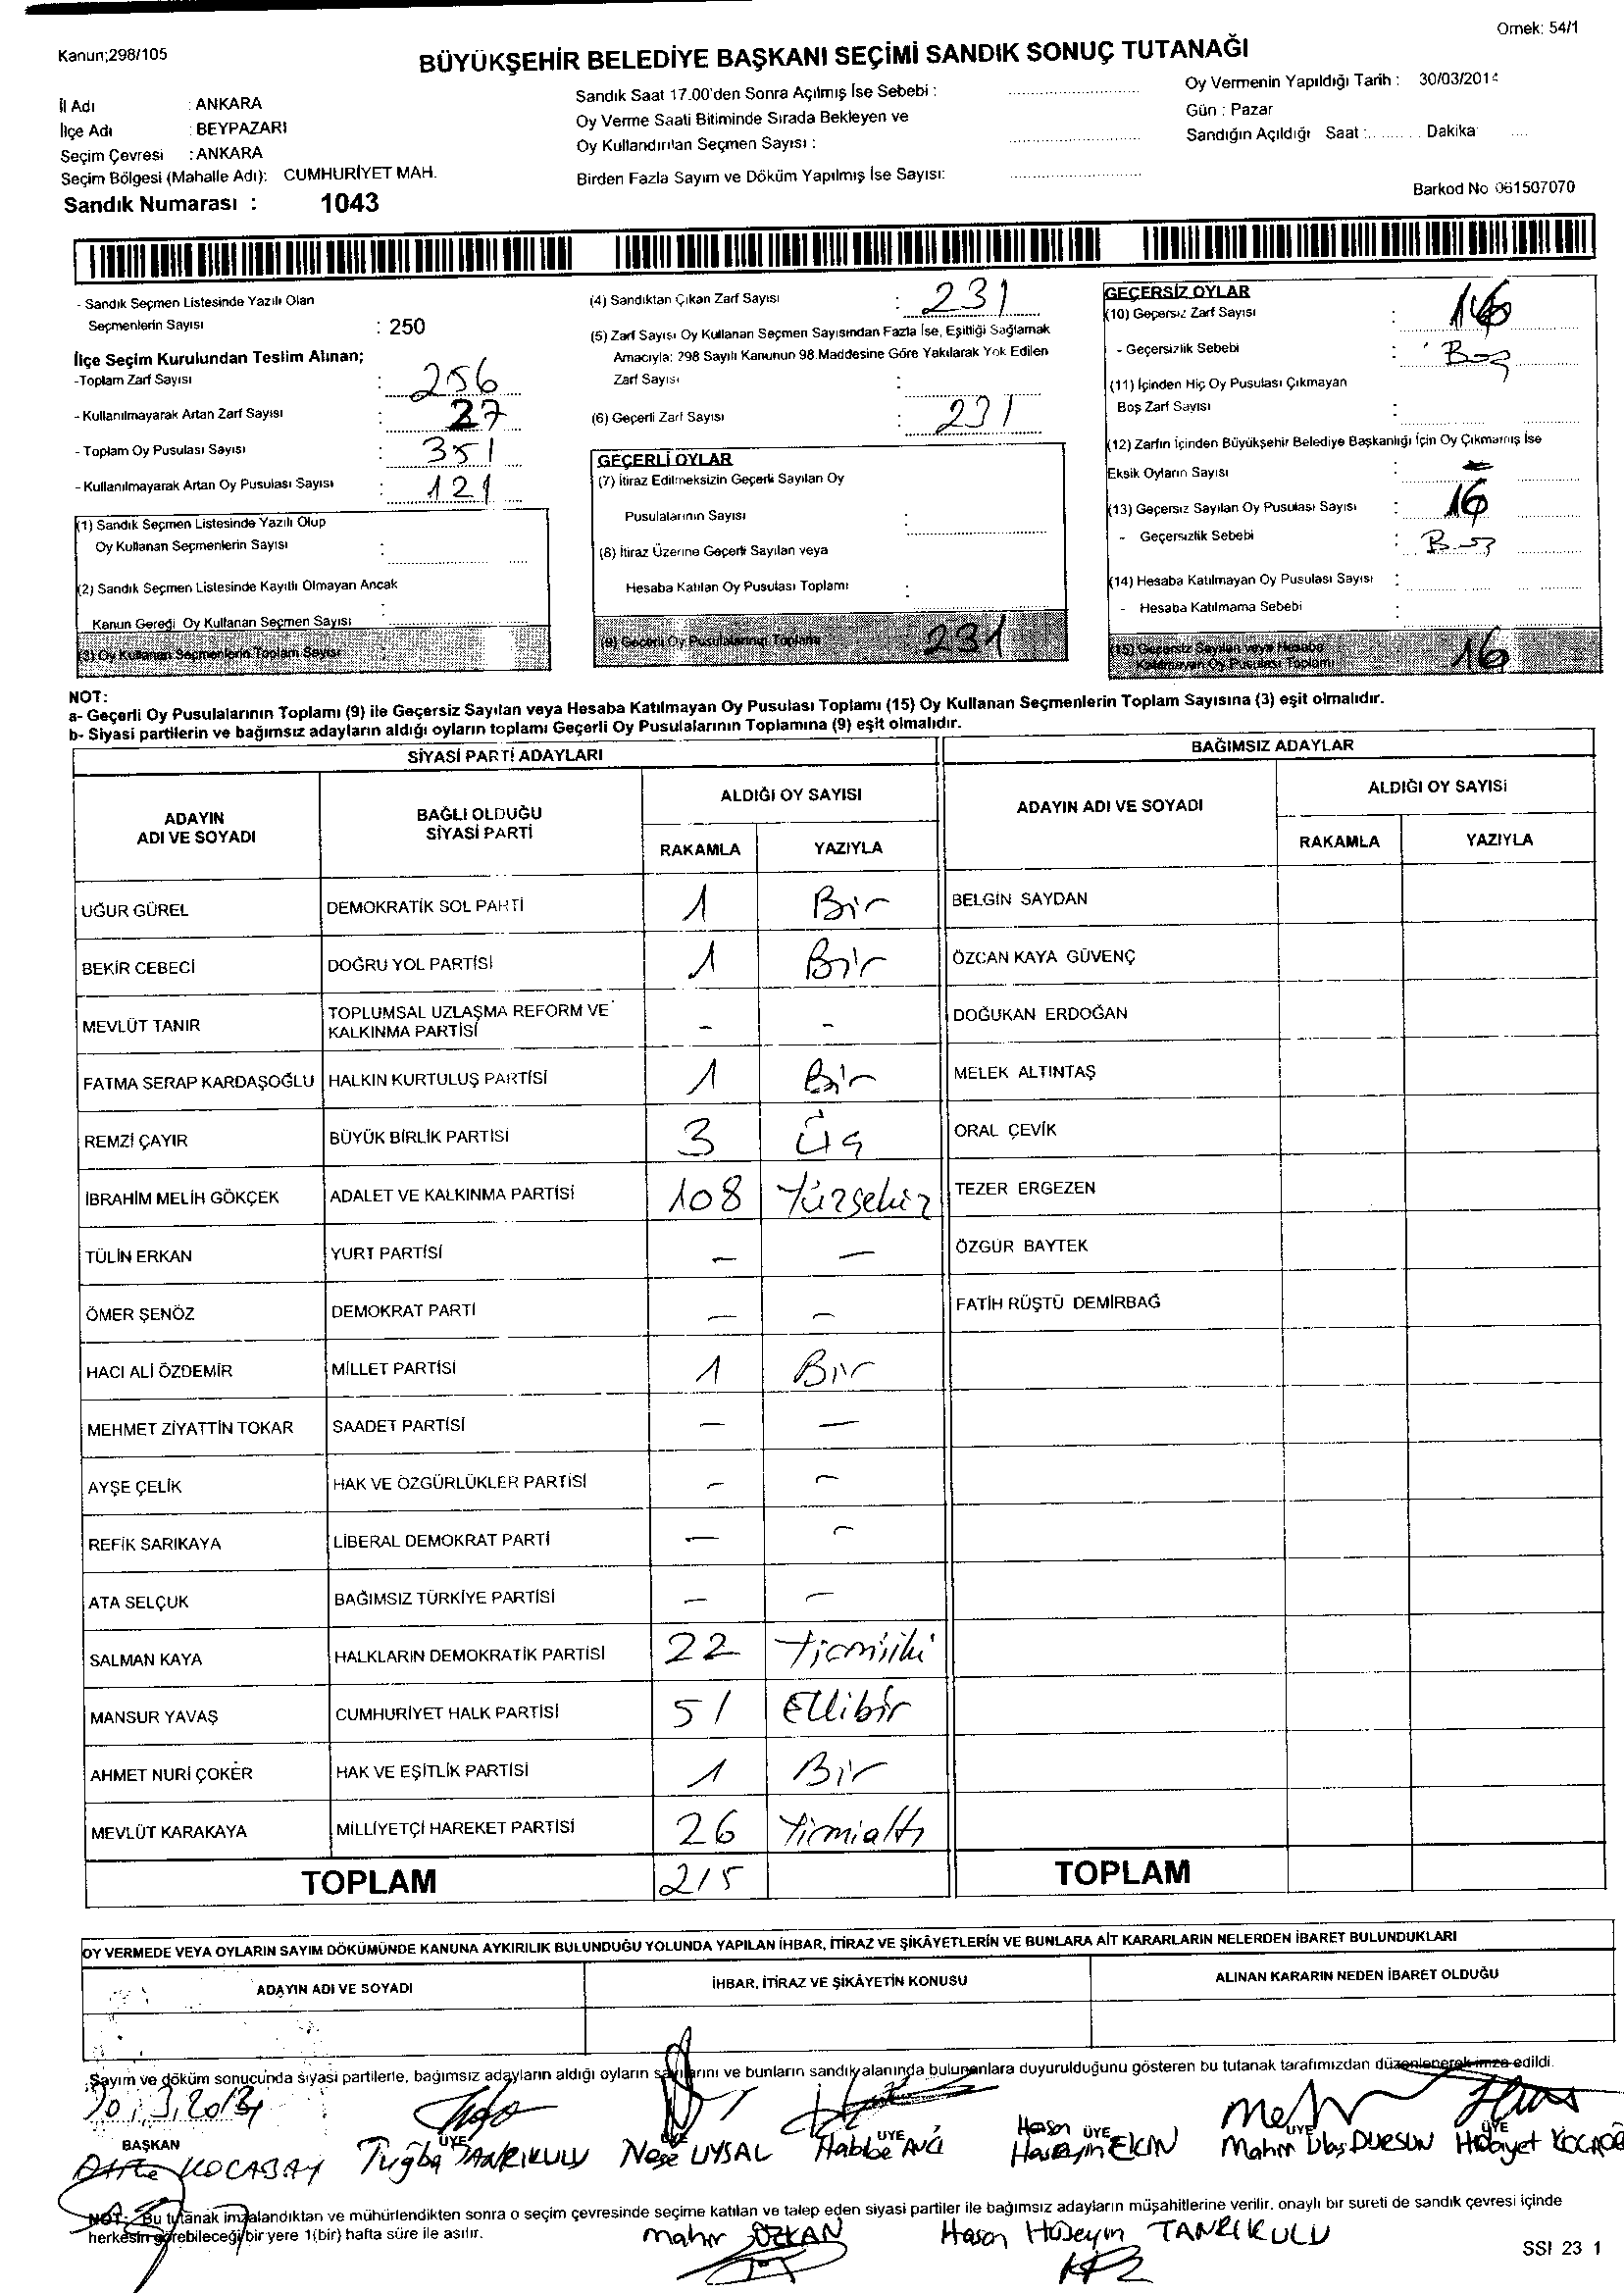 Örnek: 54/1
Kanun;298/105
BÜYÜKŞEHİR BELEDİYE BAŞKANI SEÇİMİ SANDIK SONUÇ TUTANAĞI
İl Adı : ANKARA
İlçe Adı : BEYPAZARI
Seçim Çevresi : ANKARA
Seçim Bölgesi (Mahalle Adı): CUMHURİYET MAH.
Sandık Numarası : 1043
Sandık Saat 17.00'den Sonra Açılmış İse Sebebi :
Oy Verme Saati Bitiminde Sırada Bekleyen ve
Oy Kullandırılan Seçmen Sayısı :
Birden Fazla Sayım ve Döküm Yapılmış İse Sayısı:
Oy Vermenin Yapıldığı Tarih : 30/03/2014
Gün : Pazar
Sandığın Açıldığı Saat :......... Dakika ....
Barkod No 061507070
- Sandık Seçmen Listesinde Yazılı Olan
Seçmenlerin Sayısı : 250
İlçe Seçim Kurulundan Teslim Alınan;
-Toplam Zarf Sayısı : 256
- Kullanılmayarak Artan Zarf Sayısı : 27
- Toplam Oy Pusulası Sayısı : 351
- Kullanılmayarak Artan Oy Pusulası Sayısı : 121
(1) Sandık Seçmen Listesinde Yazılı Olup
Oy Kullanan Seçmenlerin Sayısı :
(2) Sandık Seçmen Listesinde Kayıtlı Olmayan Ancak
Kanun Gereği Oy Kullanan Seçmen Sayısı :
(3) Oy Kullanan Seçmenlerin Toplam Sayısı :
(4) Sandıktan Çıkan Zarf Sayısı : 231
(5) Zarf Sayısı Oy Kullanan Seçmen Sayısından Fazla İse, Eşitliği Sağlamak
Amacıyla; 298 Sayılı Kanunun 98.Maddesine Göre Yakılarak Yok Edilen
Zarf Sayısı :
(6) Geçerli Zarf Sayısı : 231
GEÇERLİ OYLAR
(7) İtiraz Edilmeksizin Geçerli Sayılan Oy
Pusulalarının Sayısı :
(8) İtiraz Üzerine Geçerli Sayılan veya
Hesaba Katılan Oy Pusulası Toplamı :
(9) Geçerli Oy Pusulalarının Toplamı 231
GEÇERSİZ OYLAR
(10) Geçersiz Zarf Sayısı : 16
- Geçersizlik Sebebi : Boş
(11) İçinden Hiç Oy Pusulası Çıkmayan
Boş Zarf Sayısı :
(12) Zarfın İçinden Büyükşehir Belediye Başkanlığı İçin Oy Çıkmamış İse
Eksik Oyların Sayısı : -
(13) Geçersiz Sayılan Oy Pusulası Sayısı : 16
- Geçersizlik Sebebi : Boş
(14) Hesaba Katılmayan Oy Pusulası Sayısı :
- Hesaba Katılmama Sebebi :
(15) Geçersiz Sayılan veya Hesaba
Katılmayan Oy Pusulası Toplamı 16
NOT:
a- Geçerli Oy Pusulalarının Toplamı (9) ile Geçersiz Sayılan veya Hesaba Katılmayan Oy Pusulası Toplamı (15) Oy Kullanan Seçmenlerin Toplam Sayısına (3) eşit olmalıdır.
b- Siyasi partilerin ve bağımsız adayların aldığı oyların toplamı Geçerli Oy Pusulalarının Toplamına (9) eşit olmalıdır.
SİYASİ PARTİ ADAYLARI BAĞIMSIZ ADAYLAR
ADAYIN ADI VE SOYADI BAĞLI OLDUĞU SİYASİ PARTİ ALDIĞI OY SAYISI ADAYIN ADI VE SOYADI ALDIĞI OY SAYISI
RAKAMLA YAZIYLA RAKAMLA YAZIYLA
UĞUR GÜREL DEMOKRATİK SOL PARTİ 1 Bir BELGİN SAYDAN
BEKİR CEBECİ DOĞRU YOL PARTİSİ 1 Bir ÖZCAN KAYA GÜVENÇ
MEVLÜT TANIR TOPLUMSAL UZLAŞMA REFORM VE KALKINMA PARTİSİ - - DOĞUKAN ERDOĞAN
FATMA SERAP KARDAŞOĞLU HALKIN KURTULUŞ PARTİSİ 1 Bir MELEK ALTINTAŞ
REMZİ ÇAYIR BÜYÜK BİRLİK PARTİSİ 3 Üç ORAL ÇEVİK
İBRAHİM MELİH GÖKÇEK ADALET VE KALKINMA PARTİSİ 108 Yüzsekiz TEZER ERGEZEN
TÜLİN ERKAN YURT PARTİSİ - - ÖZGÜR BAYTEK
ÖMER ŞENÖZ DEMOKRAT PARTİ - - FATİH RÜŞTÜ DEMİRBAĞ
HACI ALİ ÖZDEMİR MİLLET PARTİSİ 1 Bir
MEHMET ZİYATTİN TOKAR SAADET PARTİSİ - -
AYŞE ÇELİK HAK VE ÖZGÜRLÜKLER PARTİSİ - -
REFİK SARIKAYA LİBERAL DEMOKRAT PARTİ - -
ATA SELÇUK BAĞIMSIZ TÜRKİYE PARTİSİ - -
SALMAN KAYA HALKLARIN DEMOKRATİK PARTİSİ 22 Yirmiiki
MANSUR YAVAŞ CUMHURİYET HALK PARTİSİ 51 Ellibir
AHMET NURİ ÇOKER HAK VE EŞİTLİK PARTİSİ 1 Bir
MEVLÜT KARAKAYA MİLLİYETÇİ HAREKET PARTİSİ 26 Yirmialtı
TOPLAM 215 TOPLAM
OY VERMEDE VEYA OYLARIN SAYIM DÖKÜMÜNDE KANUNA AYKIRILIK BULUNDUĞU YOLUNDA YAPILAN İHBAR, İTİRAZ VE ŞİKÂYETLERİN VE BUNLARA AİT KARARLARIN NELERDEN İBARET BULUNDUKLARI
ADAYIN ADI VE SOYADI İHBAR, İTİRAZ VE ŞİKÂYETİN KONUSU ALINAN KARARIN NEDEN İBARET OLDUĞU
Sayım ve döküm sonucunda siyasi partilerle, bağımsız adayların aldığı oyların sayılarını ve bunların sandık alanında bulunanlara duyurulduğunu gösteren bu tutanak tarafımızdan düzenlenerek imza edildi.
BAŞKAN ÜYE ÜYE ÜYE ÜYE ÜYE ÜYE
KOCABAY Tuğba TANRIKULU Neşe UYSAL Habibe AVCI Hasan Hüseyin EKİN Mahir Ulaş DURSUN Hidayet
NOT: Bu tutanak imzalandıktan ve mühürlendikten sonra o seçim çevresinde seçime katılan ve talep eden siyasi partiler ile bağımsız adayların müşahitlerine verilir, onaylı bir sureti de sandık çevresi içinde
herkesin görebileceği bir yere 1(bir) hafta süre ile asılır.
Mahir ÖZKAN Hasan Hüseyin TANRIKULU
SSI 23 1